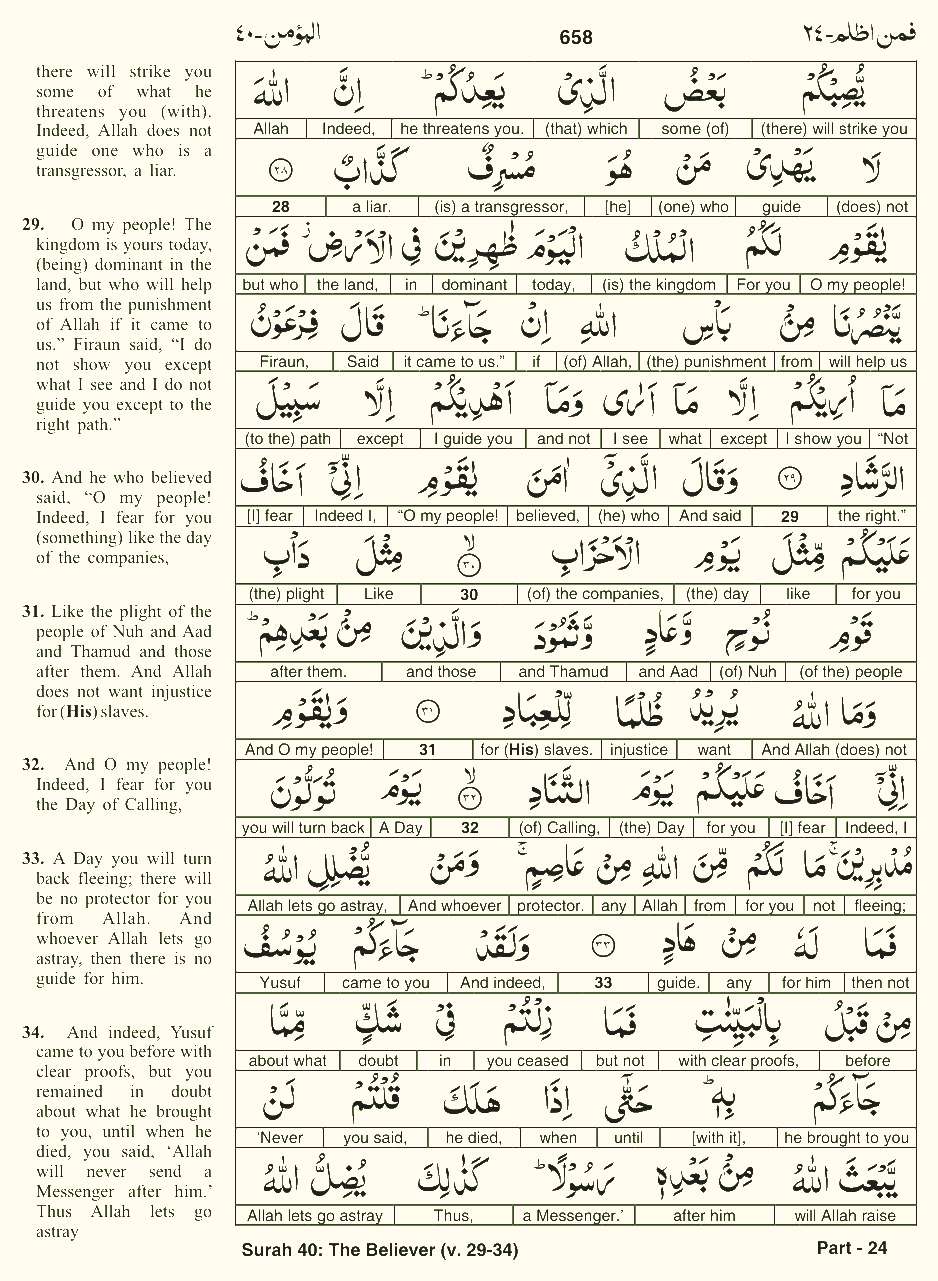 المؤمن-٤٠
658
فمن اظلم-٢٤
there will strike you
some of what he
threatens you (with).
Indeed, Allah does not
guide one who is a
transgressor, a liar.
29. O my people! The
kingdom is yours today,
(being) dominant in the
land, but who will help
us from the punishment
of Allah if it came to
us.” Firaun said, “I do
not show you except
what I see and I do not
guide you except to the
right path.”
30. And he who believed
said, “O my people!
Indeed, I fear for you
(something) like the day
of the companies,
31. Like the plight of the
people of Nuh and Aad
and Thamud and those
after them. And Allah
does not want injustice
for (His) slaves.
32. And O my people!
Indeed, I fear for you
the Day of Calling,
33. A Day you will turn
back fleeing; there will
be no protector for you
from Allah. And
whoever Allah lets go
astray, then there is no
guide for him.
34. And indeed, Yusuf
came to you before with
clear proofs, but you
remained in doubt
about what he brought
to you, until when he
died, you said, ‘Allah
will never send a
Messenger after him.’
Thus Allah lets go
astray
يُّصِبْكُمْ بَعْضُ الَّذِىْ يَعِدُكُمْ ؕ اِنَّ اللّٰهَ
Allah Indeed, he threatens you. (that) which some (of) (there) will strike you
لَا يَهْدِىْ مَنْ هُوَ مُسْرِفٌ كَذَّابٌ ٢٨
28 a liar. (is) a transgressor, [he] (one) who guide (does) not
يٰقَوْمِ لَكُمُ الْمُلْكُ الْيَوْمَ ظٰهِرِيْنَ فِى الْاَرْضِ ز فَمَنْ
but who the land, in dominant today, (is) the kingdom For you O my people!
يَّنْصُرُنَا مِنْۢ بَاْسِ اللّٰهِ اِنْ جَآءَنَا ؕ قَالَ فِرْعَوْنُ
Firaun, Said it came to us.” if (of) Allah, (the) punishment from will help us
مَآ اُرِيْكُمْ اِلَّا مَآ اَرٰى وَمَآ اَهْدِيْكُمْ اِلَّا سَبِيْلَ
(to the) path except I guide you and not I see what except I show you “Not
الرَّشَادِ ٢٩ وَقَالَ الَّذِىْۤ اٰمَنَ يٰقَوْمِ اِنِّىْۤ اَخَافُ
[I] fear Indeed I, “O my people! believed, (he) who And said 29 the right.”
عَلَيْكُمْ مِّثْلَ يَوْمِ الْاَحْزَابِ ۙ ٣٠ مِثْلَ دَاْبِ
(the) plight Like 30 (of) the companies, (the) day like for you
قَوْمِ نُوْحٍ وَّعَادٍ وَّثَمُوْدَ وَالَّذِيْنَ مِنْۢ بَعْدِهِمْ ؕ
after them. and those and Thamud and Aad (of) Nuh (of the) people
وَمَا اللّٰهُ يُرِيْدُ ظُلْمًا لِّلْعِبَادِ ٣١ وَيٰقَوْمِ
And O my people! 31 for (His) slaves. injustice want And Allah (does) not
اِنِّىْۤ اَخَافُ عَلَيْكُمْ يَوْمَ التَّنَادِ ۙ ٣٢ يَوْمَ تُوَلُّوْنَ
you will turn back A Day 32 (of) Calling, (the) Day for you [I] fear Indeed, I
مُدْبِرِيْنَ ۚ مَا لَكُمْ مِّنَ اللّٰهِ مِنْ عَاصِمٍ ۚ وَمَنْ يُّضْلِلِ اللّٰهُ
Allah lets go astray, And whoever protector. any Allah from for you not fleeing;
فَمَا لَهٗ مِنْ هَادٍ ٣٣ وَلَقَدْ جَآءَكُمْ يُوْسُفُ
Yusuf came to you And indeed, 33 guide. any for him then not
مِنْ قَبْلُ بِالْبَيِّنٰتِ فَمَا زِلْتُمْ فِىْ شَكٍّ مِّمَّا
about what doubt in you ceased but not with clear proofs, before
جَآءَكُمْ بِهٖ ؕ حَتّٰٓى اِذَا هَلَكَ قُلْتُمْ لَنْ
‘Never you said, he died, when until [with it], he brought to you
يَّبْعَثَ اللّٰهُ مِنْۢ بَعْدِهٖ رَسُوْلًا ؕ كَذٰلِكَ يُضِلُّ اللّٰهُ
Allah lets go astray Thus, a Messenger.’ after him will Allah raise
Surah 40: The Believer (v. 29-34)
Part - 24